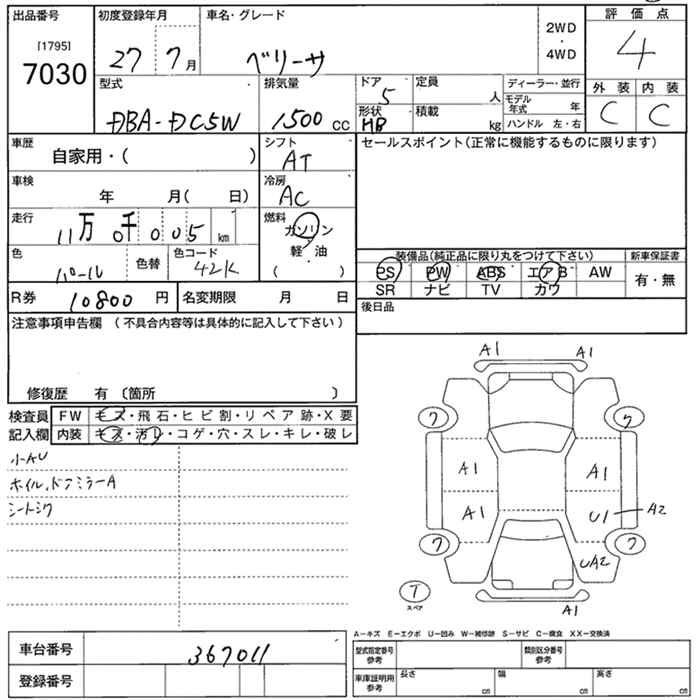 出品番号 初度登録年月 車名・グレード 評価点
[1795] 2WD
7030 27 7月 ベリーサ ・ 4
4WD
型式 排気量 ドア 定員 ディーラー・並行 外装 内装
5 人 モデル年式 年
DBA-DC5W 1500 cc 形状 積載 C C
HB kg ハンドル 左・右
車歴 シフト セールスポイント(正常に機能するものに限ります)
自家用・( ) AT
車検 冷房
年 月( 日) AC
走行 燃料
11万 0千 005 km ガソリン
色 色替 色コード 軽・油 装備品(純正品に限り丸をつけて下さい) 新車保証書
パール 42K ( ) PS PW ABS エアB AW 有・無
R券 10800 円 名変期限 月 日 SR ナビ TV カワ
注意事項申告欄 (不具合内容等は具体的に記入して下さい) 後日品
修復歴 有 〔箇所 〕
検査員 FW キズ・飛石・ヒビ割・リペア跡・X要
記入欄 内装 キズ・汚レ・コゲ・穴・スレ・キレ・破レ
小AU
ホイル、ドアミラーA
シートシワ
A1 A1
7 5
A1 A1
A1 U1 A2
7 7
UA2
T
スペア A1
A－キズ E－エクボ U－凹み W－補修跡 S－サビ C－腐食 XX－交換済
車台番号 367011 型式指定番号 参考 類別区分番号 参考
登録番号 車庫証明用 参考 長さ cm 幅 cm 高さ cm